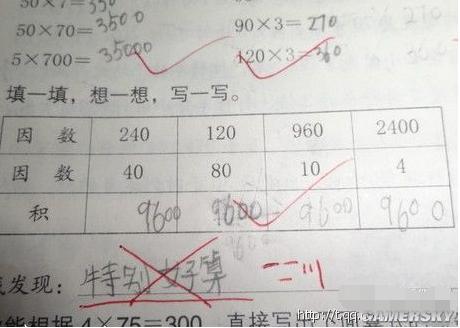 50×7=350
50×70=3500 90×3=270
5×700=35000 120×3=360
填一填，想一想，写一写。
因 数 240 120 960 2400
因 数 40 80 10 4
积 9600 9600 9600 9600
发现：特别好算
根据4×75=300，直接写出下面
http://tqq.GAMERSKY